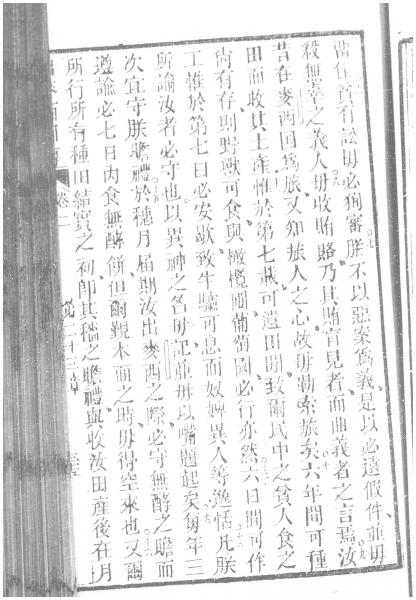 當在貧有訟毋必狥審朕不以惡案爲義是以必遠假件並毋
殺無辜之義人毋收賄賂乃其賄盲見者而曲義者之言焉汝
昔在麥西国爲旅又知旅人之心故毋勒索旅矣六年間可種
田而收其土產惟於第七載可遺田閒致爾民中之貧人食之
尙有存則野獸可食與橄欖園葡萄園必行亦然六日間可作
工惟於第七日必安歇致牛驢可息而奴婢異人等逸恬凡朕
所諭汝者必守也以異神之名毋記並毋以嘴題起矣每年三
次宜守朕瞻禮於穗月届期汝出麥西之際必守無酵之瞻而
遵諭必七日內食無酵餅但爾覲本面之時毋得空來也又爾
所行所有種田結實之初即其穡之瞻禮與收汝田產後在月
卷二 第二十三章